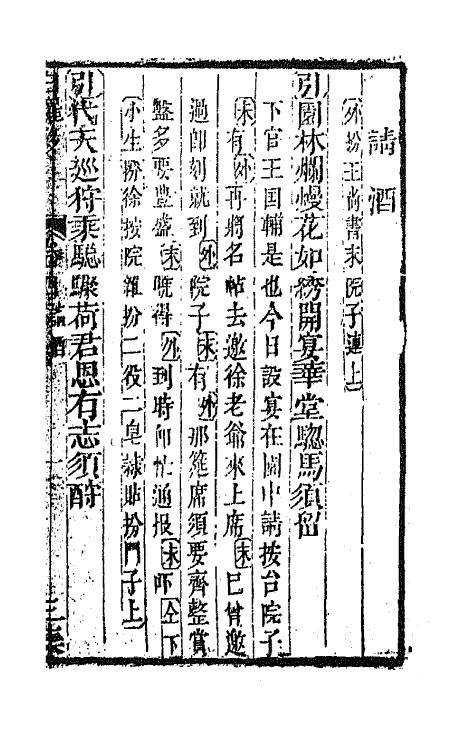 請酒
外扮王尚書末院子連上
引園林爛熳花如綉開宴華堂驄馬須留
下官王国輔是也今日設宴在園中請按台院子
末有外再將名帖去邀徐老爺來上席末已曾邀
過即刻就到外院子末有外那筵席須要齊整賞
盤多要豐盛末曉得外到時即忙通报末吓仝下
小生扮徐按院雜扮二役二皂隸貼扮門子上
引代天巡狩乘驄驟荷君恩有志須酧